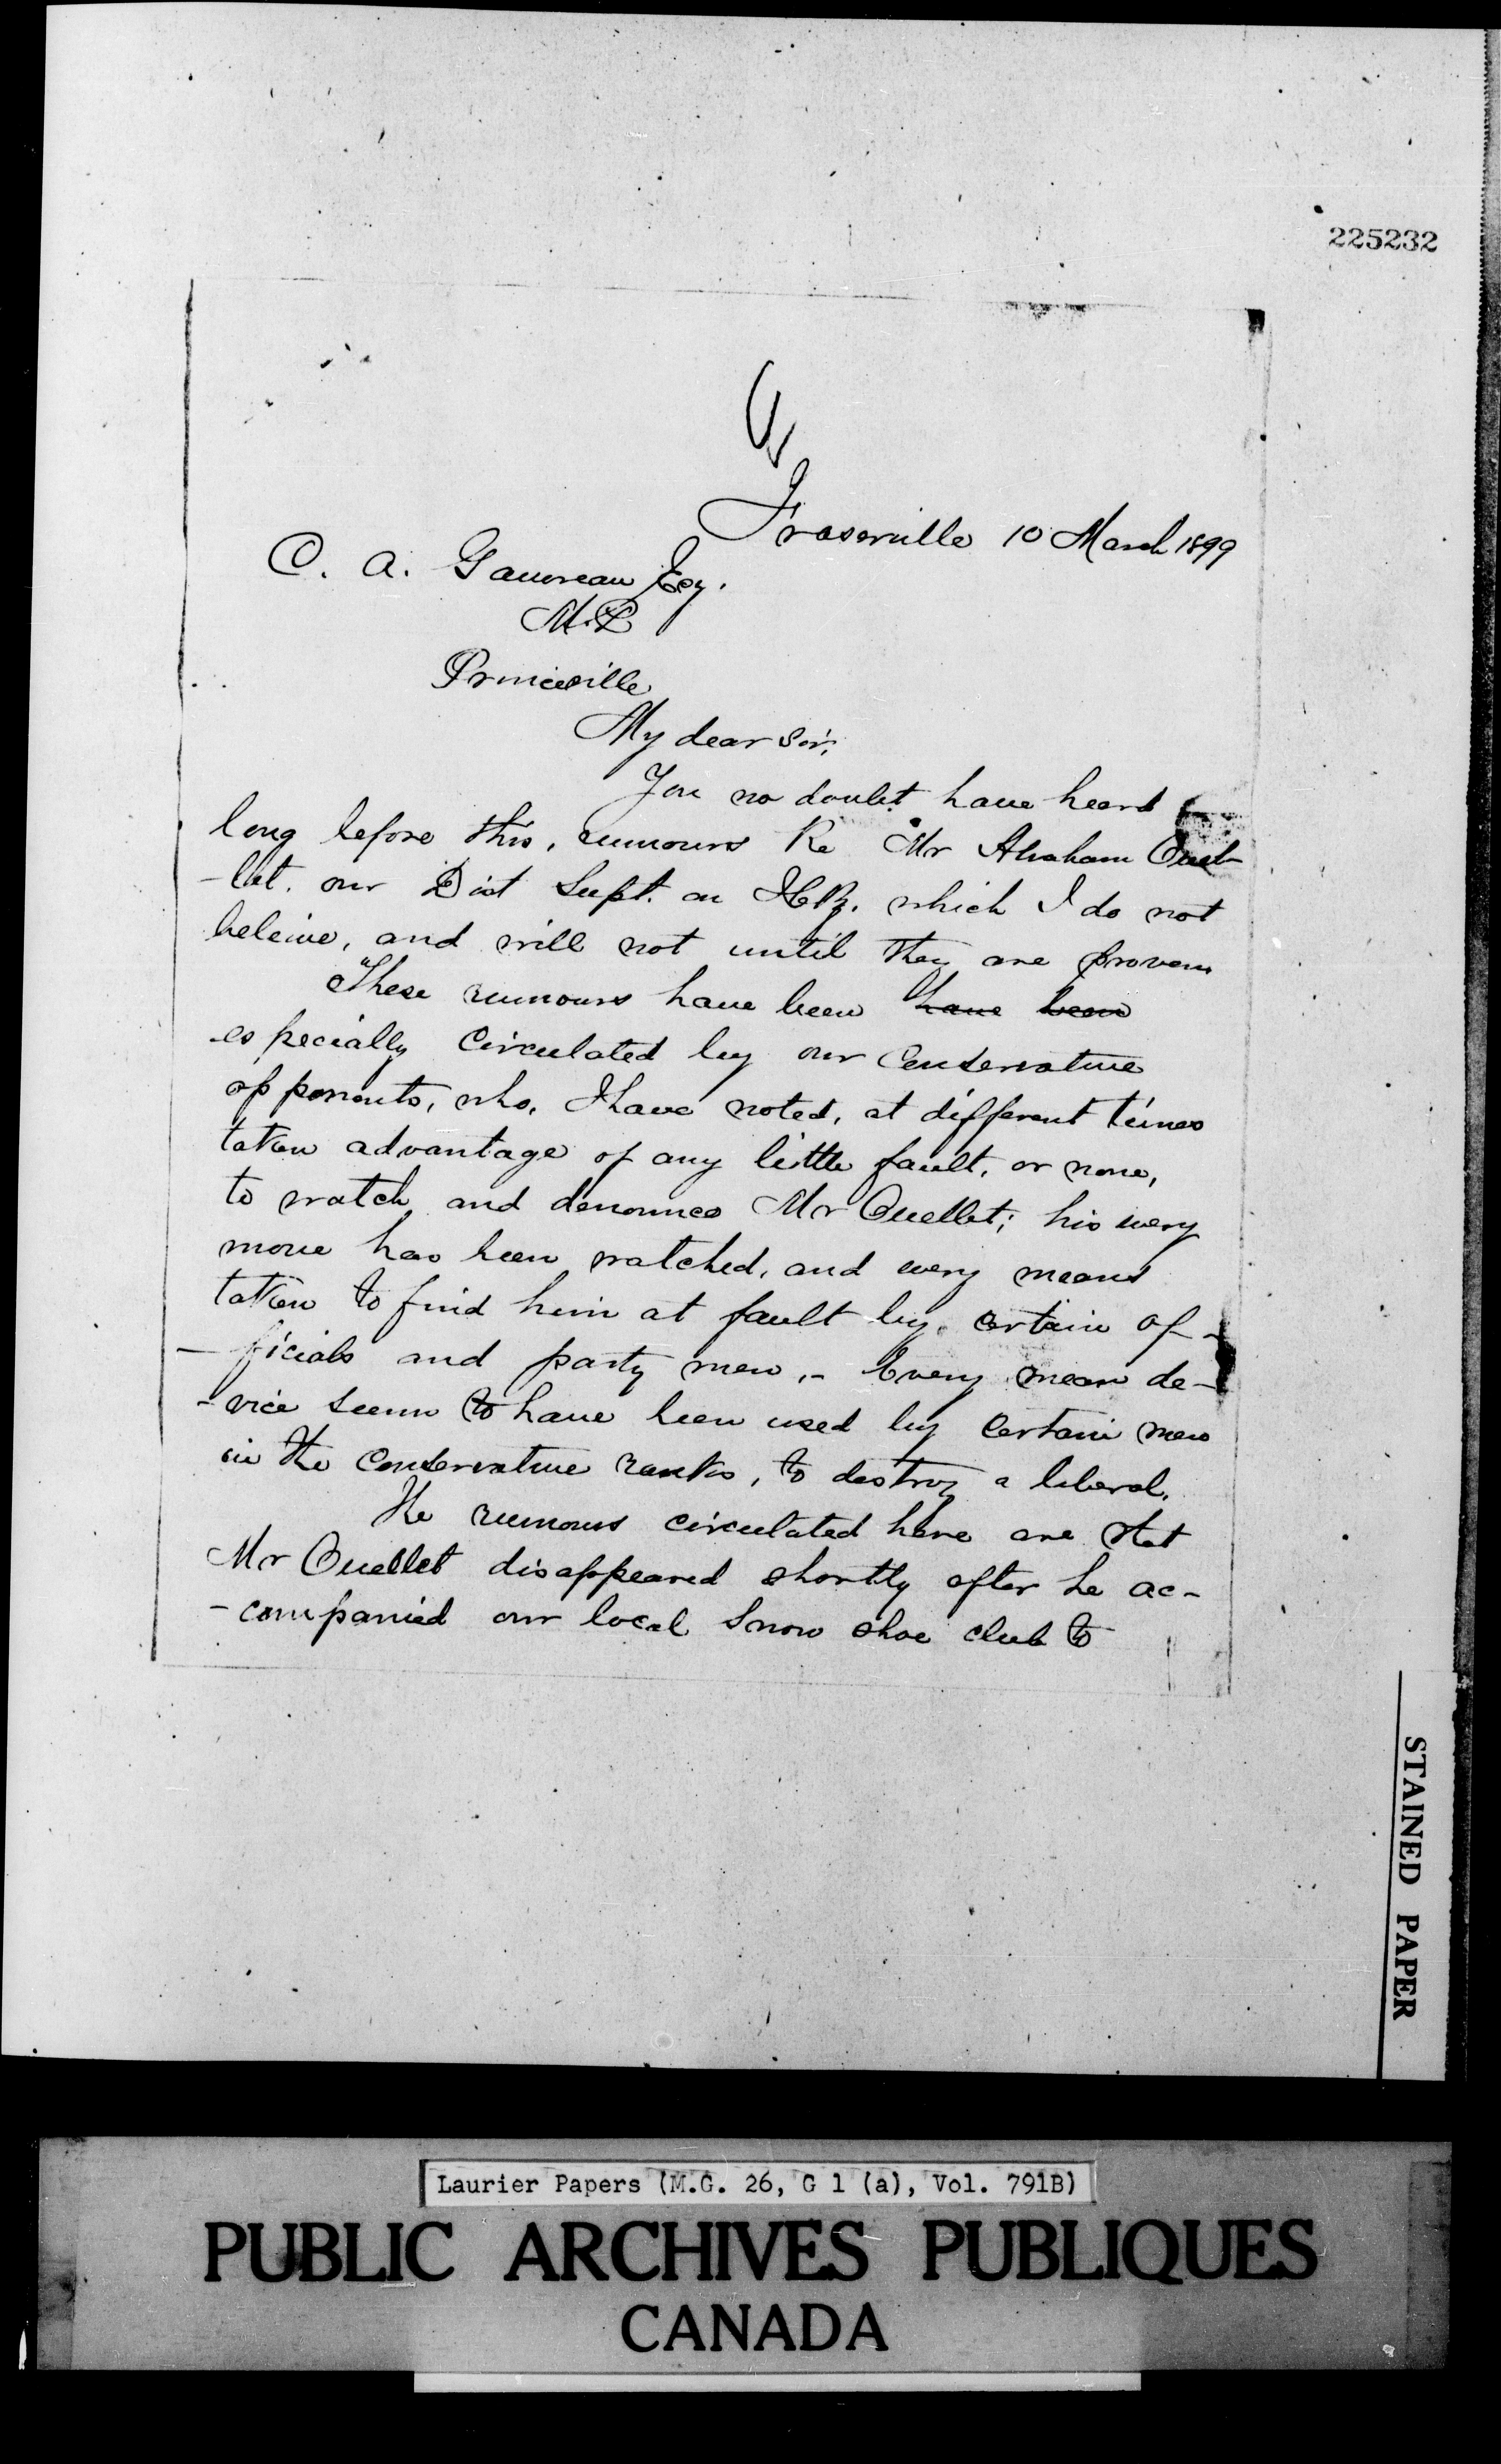 225232
Fraserville 10 March 1899
C. A. Gauvreau Esq.
M.P.
Princeville
My dear Sir,
You no doubt have heard
long before this, rumours Re Mr Abraham Ouel-
-let. our Dist Supt. on ICRy. which I do not
beleive, and will not until they are proven.
These rumours have been have been
especially circulated by our Conservative
opponents, who, I have noted, at different times
taken advantage of any little fault, or none,
to watch and denounce Mr Ouellet; his every
move has been watched, and every means
taken to find him at fault by certain of-
-ficials and party men,- Every mean de-
-vice seem to have been used by certain men
in the Conservative ranks, to destroy a liberal.
The rumours circulated here are that
Mr Ouellet disappeared shortly after he ac-
-companied our local Snow shoe club to
STAINED PAPER
Laurier Papers (M.G. 26, G 1 (a), Vol. 791B)
PUBLIC ARCHIVES PUBLIQUES
CANADA